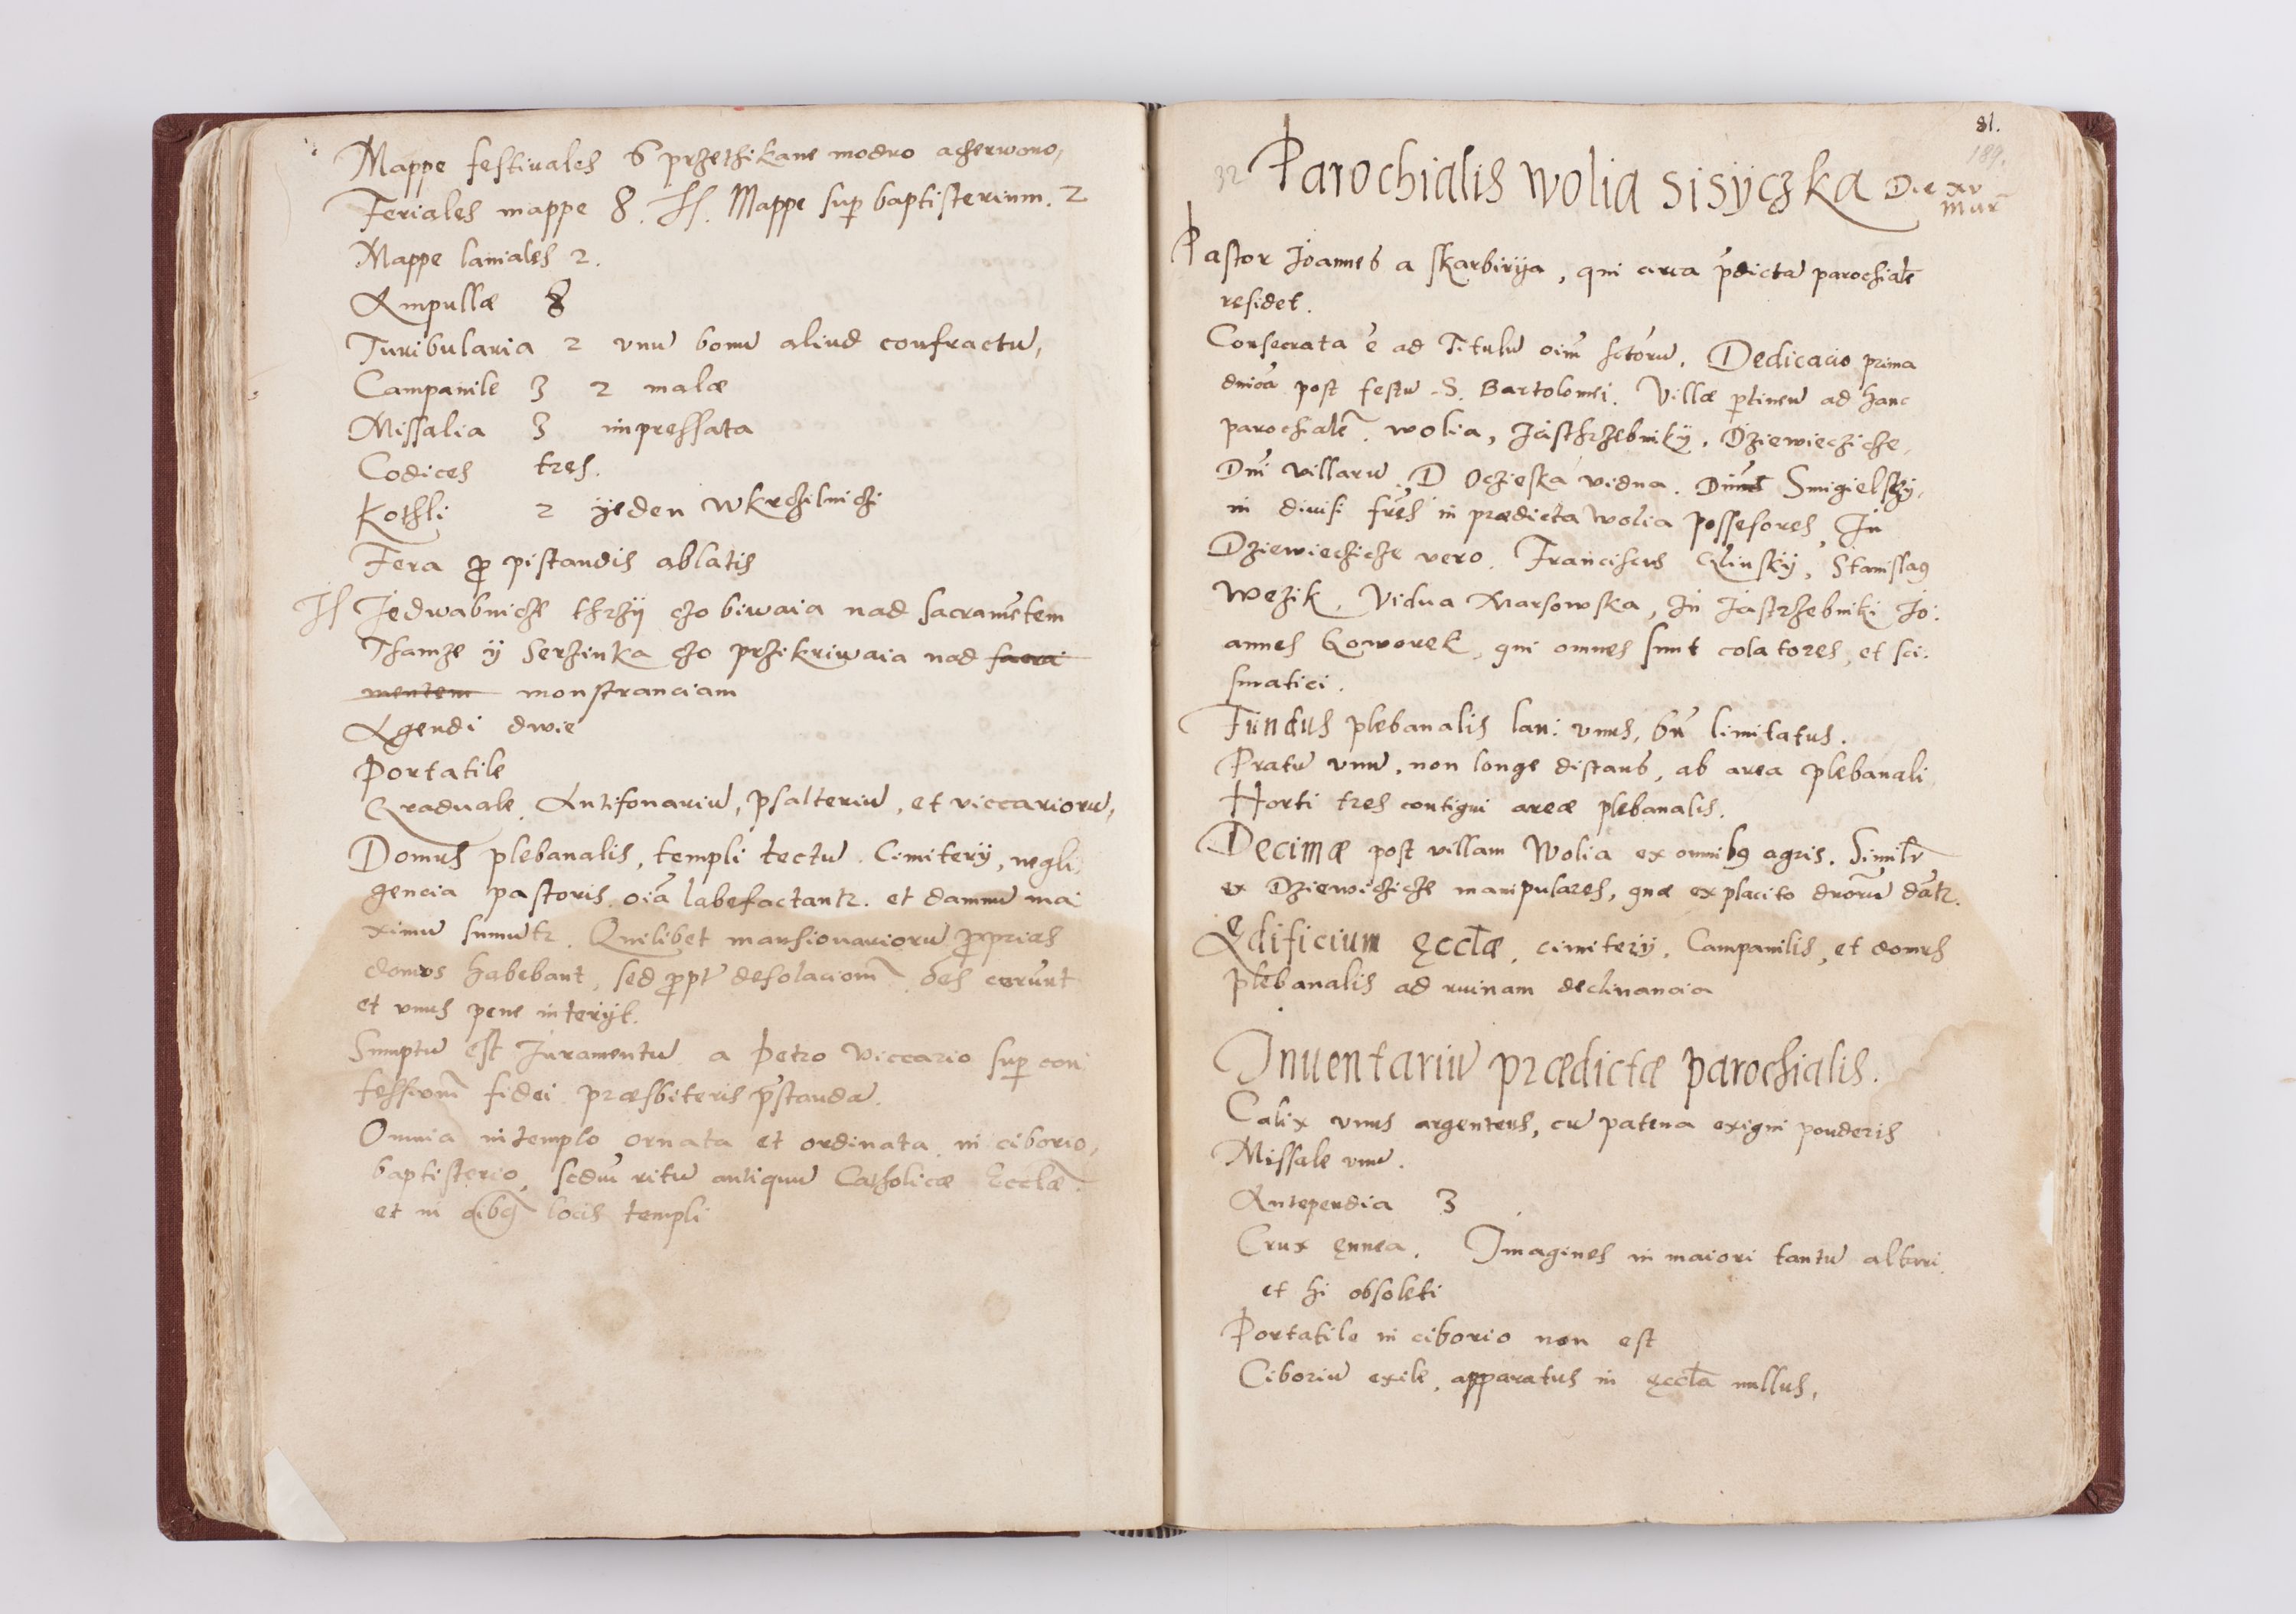 Mappe festiuales 6 przethikane modro aczerwono,
Feriales mappe 8. It. Mappe sup baptisterium. 2
Mappe laniales 2.
Ampullæ 8
Turibularia 2 vnū bonū aliud confractū,
Campanile 3 2 malæ
Missalia 3 impressata
Codices tres.
Kothli 2 yeden wkrchzilnichi
Fera p pistandis ablatis
It Jedwabnicze thrzÿ czo biwaia nad sacramētem
Thamze ÿ Serzinka czo przikriwaia nad sacra
mentem monstranciam
Agendi dwie
Portatile
Graduale. Antifonariū, psalteriū, et viccariorū,
Domus plebanalis, templi tectū. Cimiterÿ, negli
gencia pastoris. oīa labefactantr. et damnū ma
ximū sumūtr. Quilibet mansionariorū pprias
domos habebant, sed ppt desolacionē oēs corūnt
et vnus pene interÿt.
Sumptū est Juramentū a Petro Viccario sup con
fessionē fidei præsbiteris p̄standa.
Omnia in templo ornata et ordinata in ciborio,
baptisterio, scdm̄ ritū antiquū Catholicæ Ecclæ
et in oībq locis templi
81.
189.
32 Parochialis Wolia sisÿczka Die xv
Mar
Pastor Joannes a skarbirÿa, qui circa p̄dictā parochialē
residet.
Consecrata ē ad Titulū oīm sctōrū. Dedicacio prima
dnīca post festū S. Bartolomei. Villæ ptinēn ad hanc
parochialē. Wolia, Jasthrzebnikÿ, Dziewiecziche,
Dnī villarū. D Oczieska vidua. Dnūs Smigielskÿ,
in diuis: frēs in prædicta Wolia possesores, In
Dziewiecziche vero. Franciscus Glinskÿ, Stanislaq
Wezik, Vidua Marsowska, In Jastrzebniki Jo:
annes Goworek, qui omnes sunt colatores, et sci:
smatici.
Fundus plebanalis lan: vnus, bn̄ limitatus.
Pratū vnū, non longe distans, ab area plebanali
Horti tres contigui areæ plebanalis.
Decimæ post villam Wolia ex omnibq agris. Similr̄
ex Dziewichiche manipulares, quæ ex placito dnōrū dātr.
Ædificium ęcclæ, cimiterÿ, Campanilis, et domus
plebanalis ad ruinam declinancia
Inuentariū prædictæ parochialis.
Calix vnus argenteus, cū patena exigui ponderis
Missale vnū.
Antependia 3
Crux ęnnea. Imagines in maiori tantū altari
et hi obsoleti
Portatile in ciborio non est
Ciboriū exile, apparatus in ęcclā nullus,